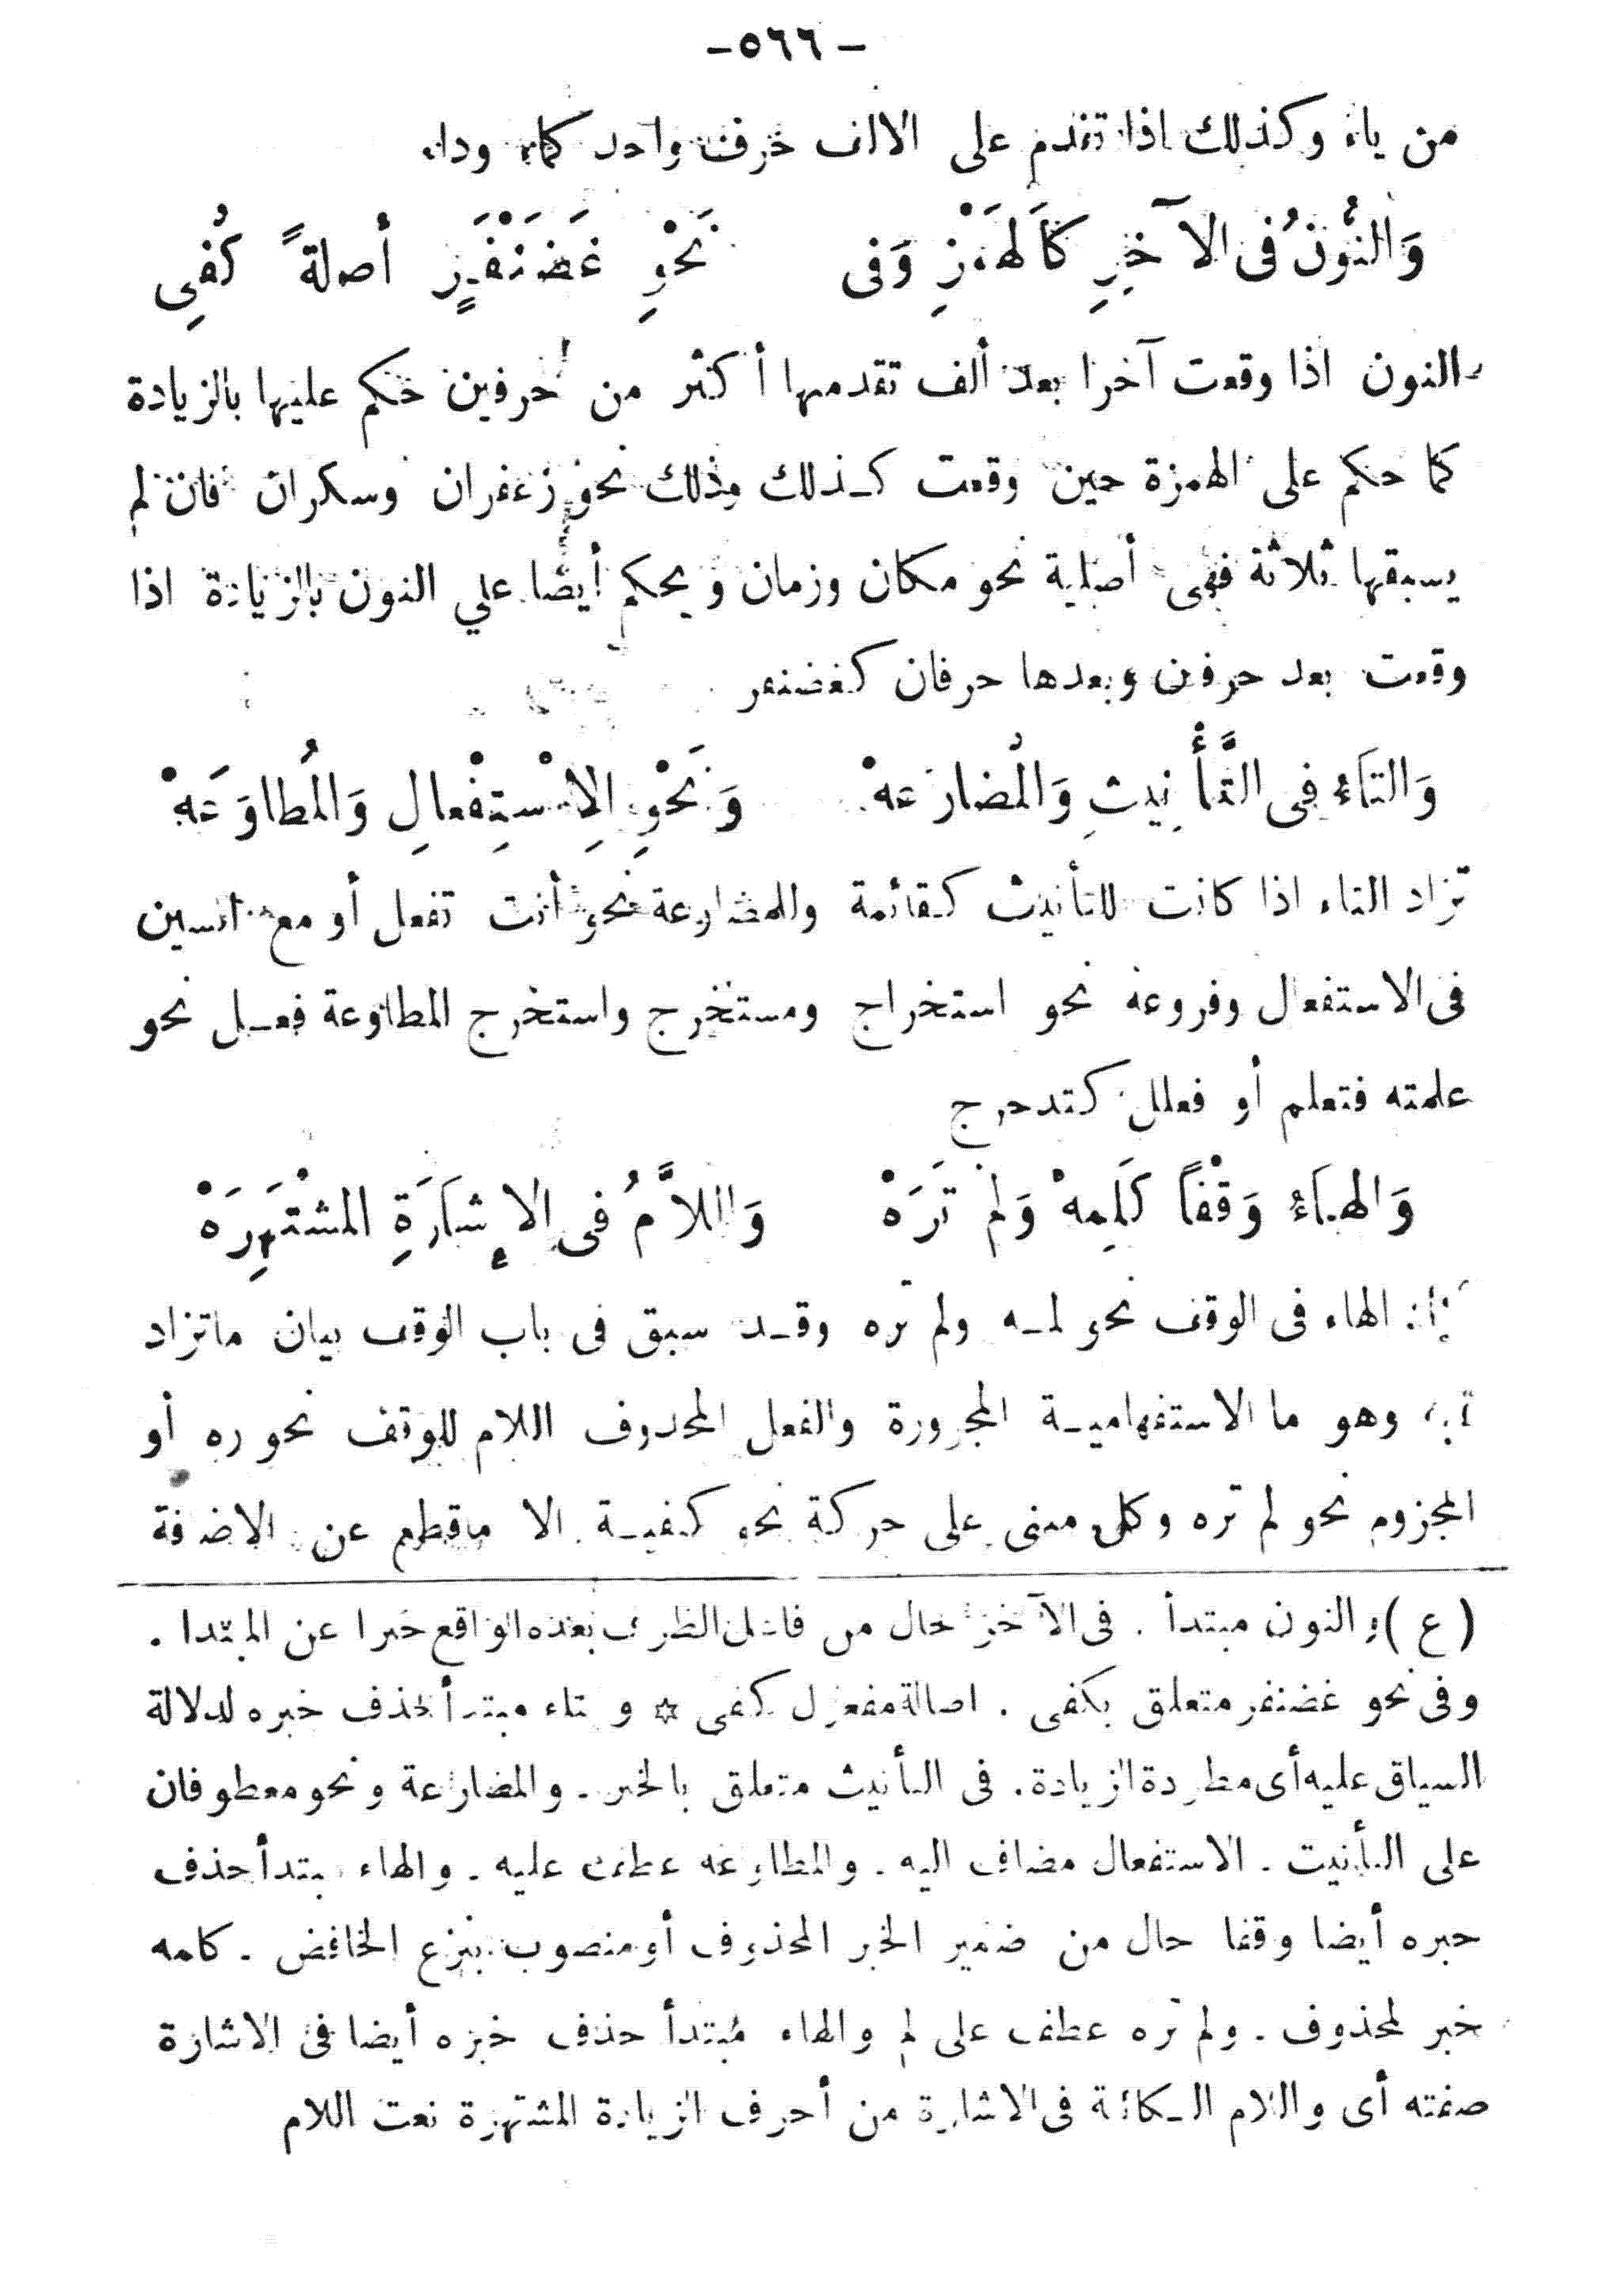 -٥٦٦-
من ياء وكذلك اذا تقدم على الالف حرف واحد كماء وداء
وَالنُّونُ فى الآخِرِ كَالهَمْزِ وَفى نَحْوِ غَضَنْفَرٍ أصلةً كُفِى
والنون اذا وقعت آخرا بعد ألف تقدمها أكثر من حرفين حكم عليها بالزيادة
كما حكم على الهمزة حين وقعت كذلك وذلك نحو زعفران وسكران فان لم
يسبقها ثلاثة فهى أصلية نحو مكان وزمان ويحكم أيضا علي النون بالزيادة اذا
وقعت بعد حرفين وبعدها حرفان كغضنفر
وَالتاءُ فى التَّأْنِيثِ وَالمُضارَعهْ وَنَحْوِ الِاسْتِفْعالِ وَالمُطاوَعَهْ
تزاد التاء اذا كانت للتأنيث كقائمة وللمضارعة نحو أنت تفعل أو مع السين
فى الاستفعال وفروعه نحو استخراج ومستخرج واستخرج المطاوعة فعل نحو
علمته فتعلم أو فعلل كتدحرج
وَالهاءُ وَقْفاً كَلِمهْ وَلمْ تَرَهْ وَاللاَّمُ فى الإِشارَةِ المشْتَهِرَهْ
تزاد الهاء فى الوقف نحو لمه ولم تره وقد سبق فى باب الوقف بيان ماتزاد
فيه وهو ما الاستفهامية المجرورة والفعل المحذوف اللام للوقف نحو ره أو
المجزوم نحو لم تره وكل مبنى على حركة نحو كيفية الا ماقطع عن الاضافة
( ع ) والنون مبتدأ . فى الآخر حال من فاعل الظرف بعده الواقع خبرا عن المبتدا .
وفى نحو غضنفر متعلق بكفى . اصالة مفعول كفى ☆ والتاء مبتدأ حذف خبره لدلالة
السياق عليه أى مطردة الزيادة . فى التأنيث متعلق بالخبر . والمضارعة ونحو معطوفان
على التأنيث . الاستفعال مضاف اليه . والمطاوعه عطف عليه . والهاء مبتدأ حذف
خبره أيضا وقفا حال من ضمير الخبر المحذوف أو منصوب بنزع الخافض . كلمه
خبر لمحذوف . ولم تره عطف على لم والهاء مبتدأ حذف خبره أيضا فى الاشارة
صفته أى واللام الكائنة فى الاشارة من أحرف الزيادة المشتهرة نعت اللام